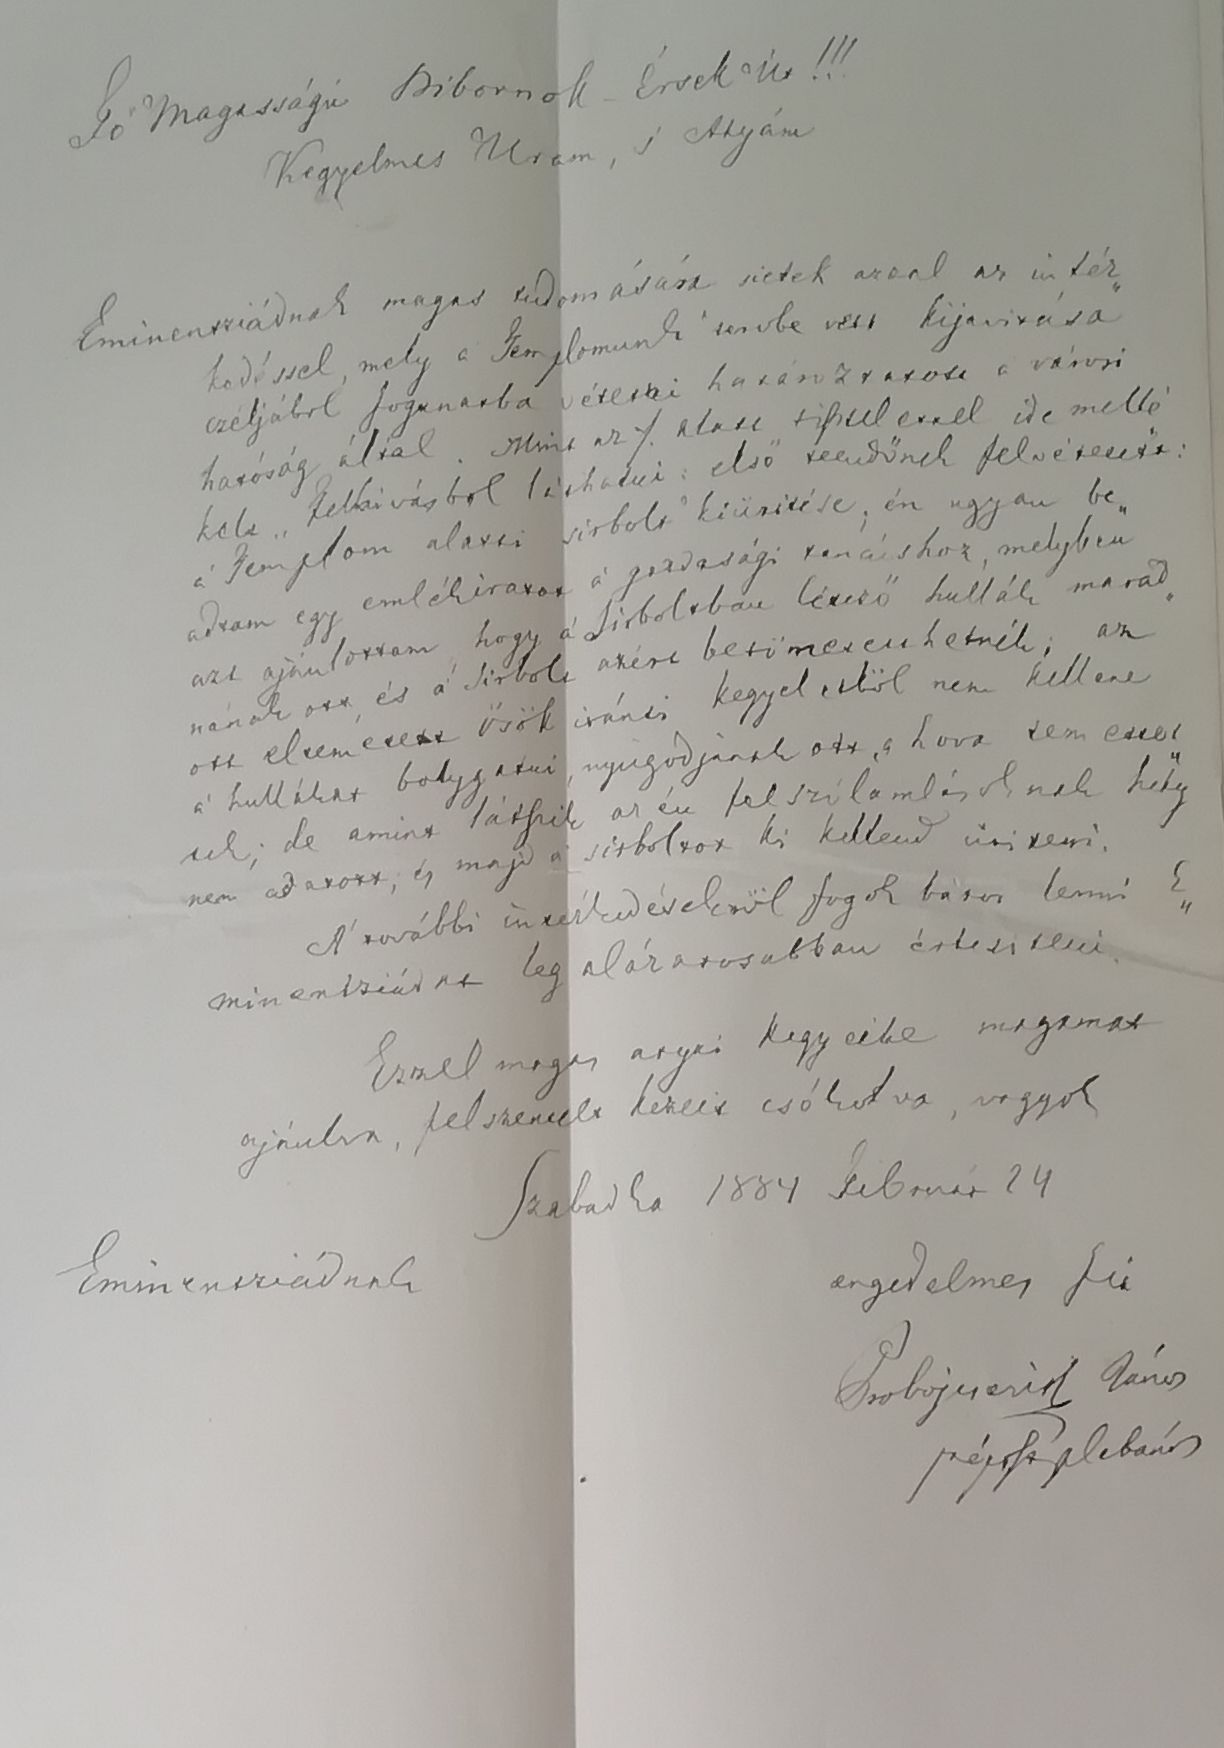 Fő Magasságú Bibornok-Érsek Úr!!!
Kegyelmes Uram, s Atyám
Eminentziádnak magas tudomására sietek azzal az intéz„
kedéssel, mely a' Templomunk' tervbe vett kijavitása
czéljából foganatba vétetni határoztatott a városi
hatóság által. Mint az /. alatt tisztelettel ide mellé
kelt „Felhivásból láthatni: első teendőnek felvétetett:
a' Templom alatti sirbolt' kiüritése, én ugyan be„
adtam egy emlékiratot a' gazdasági tanácshoz, melyben
azt ajánlottam, hogy a' Sirboltban létező hullák marad„
nának ott, és a' Sirbolt azért betömetethetnék; az
ott eltemetett ősök iránti kegyeletből nem kellene
a' hullákat bolygatni, nyugodjanak ott, a hova temettet„
tek; de amint látszik az én felszólamlásoknak hely
nem adatott, és majd a' sirboltot ki kellend üriteni.
A' további intézkedésekről fogok bátor lenni E„
minentziádat leg alázatosabban értesiteni.
Ezzel magas atyai kegyeibe magamat
ajánlva, felszentelt kezeit csókolva, vagyok
Szabadka 1884 Február 24
Eminentziádnak
engedelmes fia
János
plebános